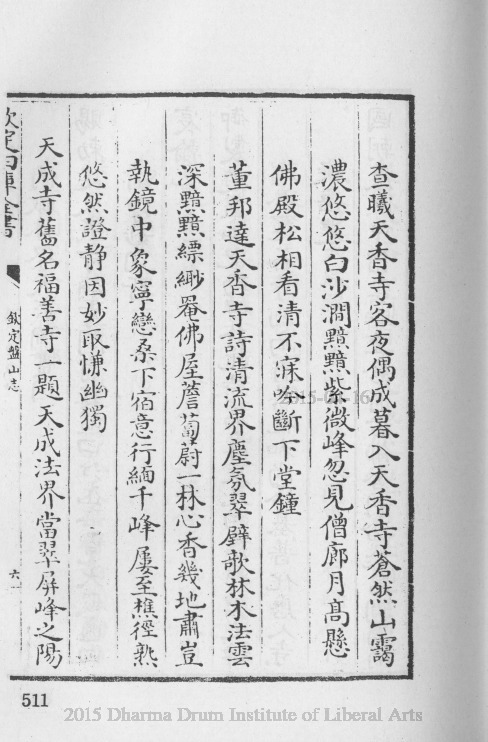 查曦天香寺客夜偶成暮入天香寺蒼然山靄
濃悠悠白沙澗黯黯紫微峰忽見僧廊月高懸
佛殿松相看清不寐吟斷下堂鐘
董邦達天香寺詩清流界塵氛翠壁歌林木法雲
深黯黮縹緲罨佛屋薝蔔蔚一林心香幾地肅豈
執鏡中象寧戀桑下宿意行緬千峰屢至樵徑熟
悠然證靜因妙取慊幽獨
天成寺舊名福善寺一題天成法界當翠屏峰之陽
欽定四庫全書
欽定盤山志
六
511
2015 Dharma Drum Institute of Liberal Arts